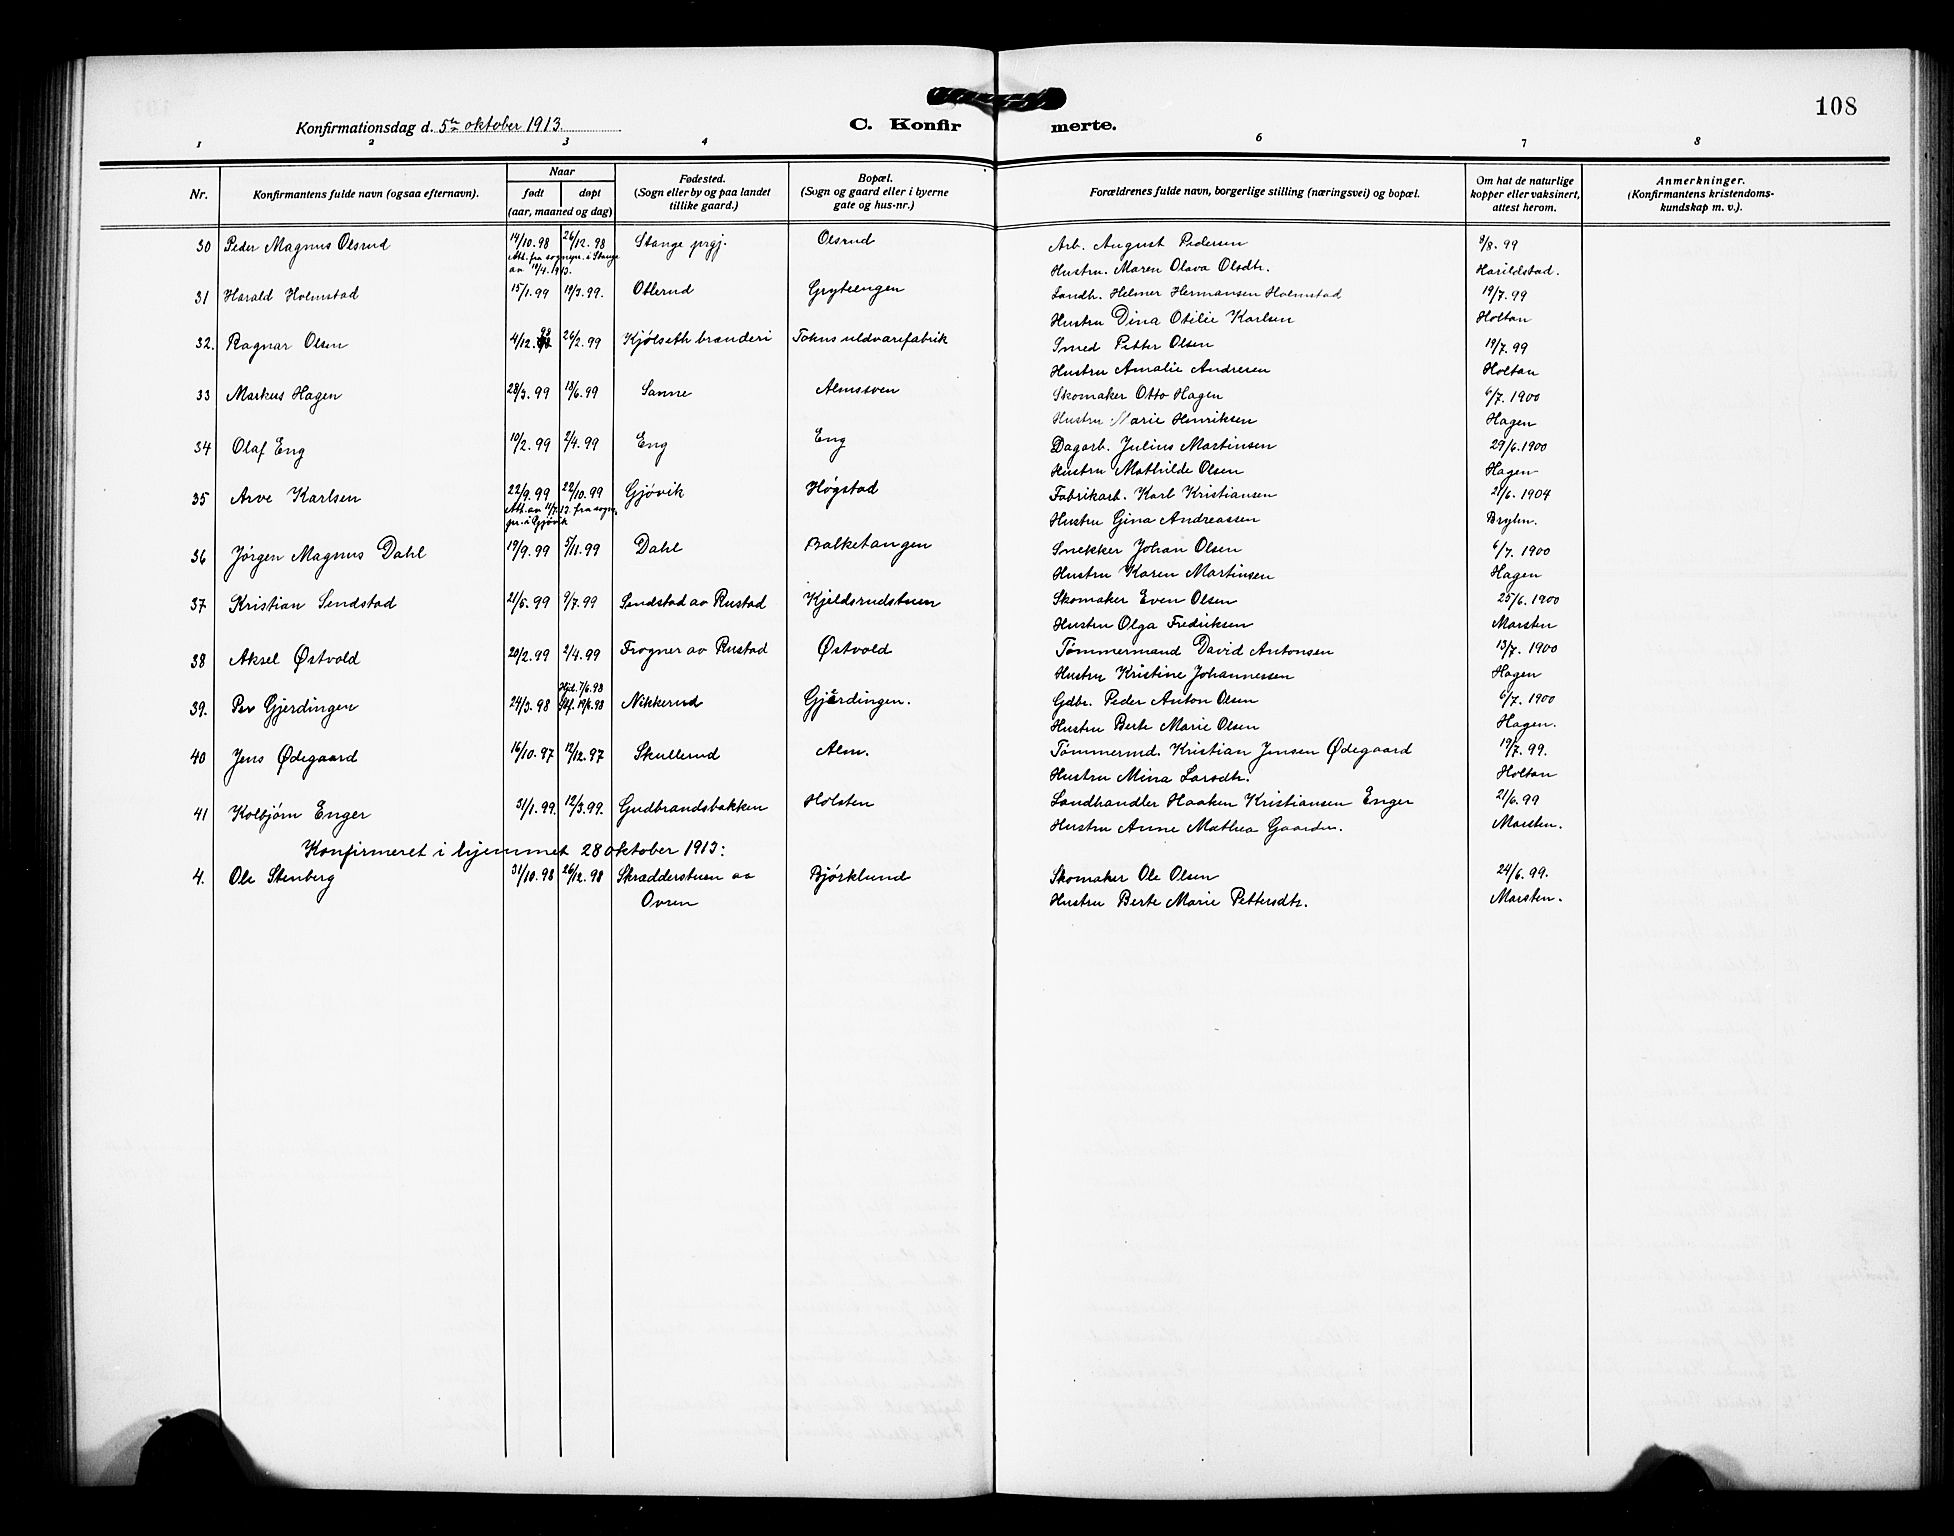 108
Konfirmationsdag d. 5te oktober 1913.
C. Konfirmerte.
1 2 3 4 6 7 8
Nr. Konfirmantens fulde navn (ogsaa efternavn). Naar født døpt (aar, maaned og dag) Fødested. (Sogn eller by og paa landet tillike gaard.) Bopæl. (Sogn og gaard eller i byerne gate og hus-nr.) Forældrenes fulde navn, borgerlige stilling (næringsvei) og bopæl. Om hat de naturlige kopper eller vaksinert, attest herom. Anmerkninger. (Konfirmantens kristendomskundskap m. v.).
30 Peder Magnus Olsrud 14/10.98 26/12.98 Stange prgj. Olsrud Arb. August Pedersen 9/8.99
Att. fra sognepr. i Stange av 18/4.1913. Hustru Maren Olava Olsdtr. Harildstad.
31 Harald Holmstad 15/1.99 19/3.99. Otterud Gryteengen Landh. Helmer Hermansen Holmstad 19/7.99
Hustru Dina Otilie Karlsen Holtan
32. Ragnar Olsen 4/12.98 26/2.99 Kjølseth brænderi Tokns uldvarefabrik Smed Petter Olsen 19/7.99
Hustru Amalie Andresen Holtan
33 Markus Hagen 28/3.99 18/6.99 Sanne Almssven Skomaker Otto Hagen 6/7.1900
Hustru Marie Henriksen Hagen
34 Olaf Eng 10/2.99 2/4.99 Eng Eng Dagarb. Julius Martinsen 29/6.1900
Hustru Mathilde Olsen Hagen
35 Arve Karlsen 22/9.99 22/10.99 Gjøvik Høgstad Fabrikarb. Karl Kristiansen 21/6.1904
Att. av 11/7.13. fra sogne pr. i Gjøvik Hustru Gina Andreassen Bryhn.
36 Jørgen Magnus Dahl 19/9.99 5/11.99 Dahl Balketangen Snekker Johan Olsen 6/7.1900
Hustru Karen Martinsen Hagen
37 Kristian Sendstad 21/5.99 9/7.99 Sendstad av Rustad Kjeldsrudstuen Skomaker Even Olsen 25/6.1900
Hustru Olga Fredriksen Marsten
38 Aksel Østvold 20/2.99 2/4.99 Frogner av Rustad Østvold Tømmermand David Antonsen 13/7.1900
Hustru Kristine Johannessen Hagen
39. Per Gjerdingen 24/3.98 Hjd. 7/6.98 Stf. 19/6.98 Nikkerud Gjerdingen. Gdbr. Peder Anton Olsen 6/7.1900
Hustru Berte Marie Olsen Hagen.
40 Jens Ødegaard 16/10.97 12/12.97 Skullerud Alm. Tømmermd. Kristian Jensen Ødegaard 19/7.99.
Hustru Mina Larsdtr. Holtan
41 Kolbjørn Enger 31/1.99. 12/3.99. Gudbrandsbakken Holsten Landhandler Haaken Kristiansen Enger 21/6.99
Hustru Anne Mathea Gaarder. Marsten.
Konfirmeret i hjemmet 28 oktober 1913:
4. Ole Stenberg 31/10.98 26/12.98 Skrædderstuen av Bjørklund Skomaker Ole Olsen 24/6.99.
Ovren Hustru Berte Marie Pettersdtr. Marsten.